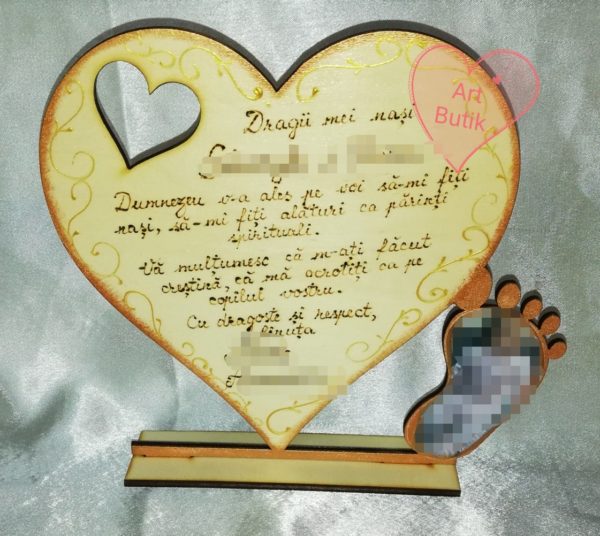 Art
Butik
Dragii mei nași
Dumnezeu v-a ales pe voi să-mi fiți
nași, să-mi fiți alături ca părinți
spirituali.
Vă multumesc că m-ați făcut
creștină, că mă ocrotiți ca pe
copilul vostru.
Cu dragoste și respect,
finuța